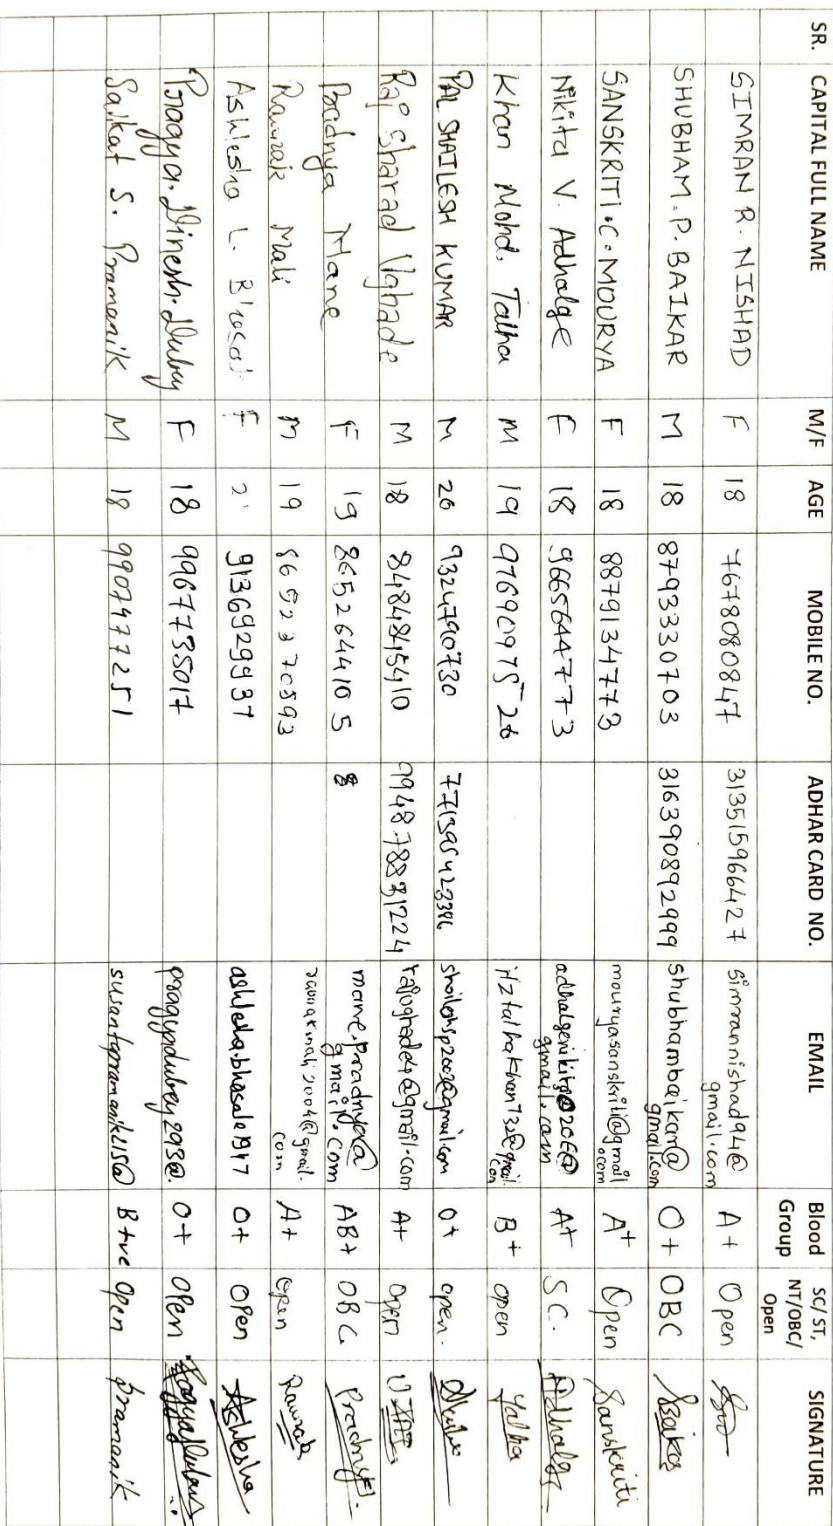 SR. CAPITAL FULL NAME M/F AGE MOBILE NO. ADHAR CARD NO. EMAIL Blood Group SC/ ST, NT/OBC/ Open SIGNATURE
SIMRAN R. NISHAD F 18 7678080847 313515966427 simrannishad94@gmail.com A+ Open
SHUBHAM. P. BAIKAR M 18 8793330703 316390892999 shubhambaikar@gmail.com O+ OBC
SANSKRITI. C. MOURYA F 18 8879134773 mouryasanskriti@gmail.com A+ Open Sanskriti
Nikita V. Adhalge F 18 9665644773 A+ SC. Adhalge
Khan Mohd. Talha M 19 9769097526 B+ open Talha
PAL SHAILESH KUMAR M 20 9324790730 O+ open.
Raj Sharad Ughade M 18 8484845410 A+ Open
Pradnya Mane F 19 8652644105 8 mane.pradnya@gmail.com AB+ OBC Pradnya.
Raunak Mali M 19 8652370593 raunakmali2004@gmail.com A+ Open Raunak
Ashlesha L. Bhosale F 9136929937 ashlesha.bhosale1947 O+ OPen Ashlesha
Pragya. Dinesh. Dubey F 18 9967735017 pragyadubey293@. O+ OPen
Saikat S. Pramanik M 18 9907477251 susantapramanik215@ B+ve Open Pramanik